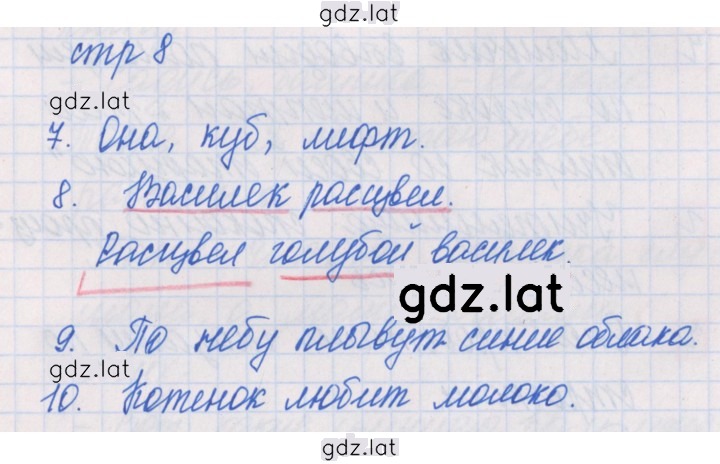 gdz.lat
стр 8
gdz.lat
7. Она, куб, лифт.
8. Василек расцвел.
Расцвел голубой василек.
gdz.lat
9. По небу плывут синие облака.
gdz.lat
10. Котенок любит молоко.
gdz.lat